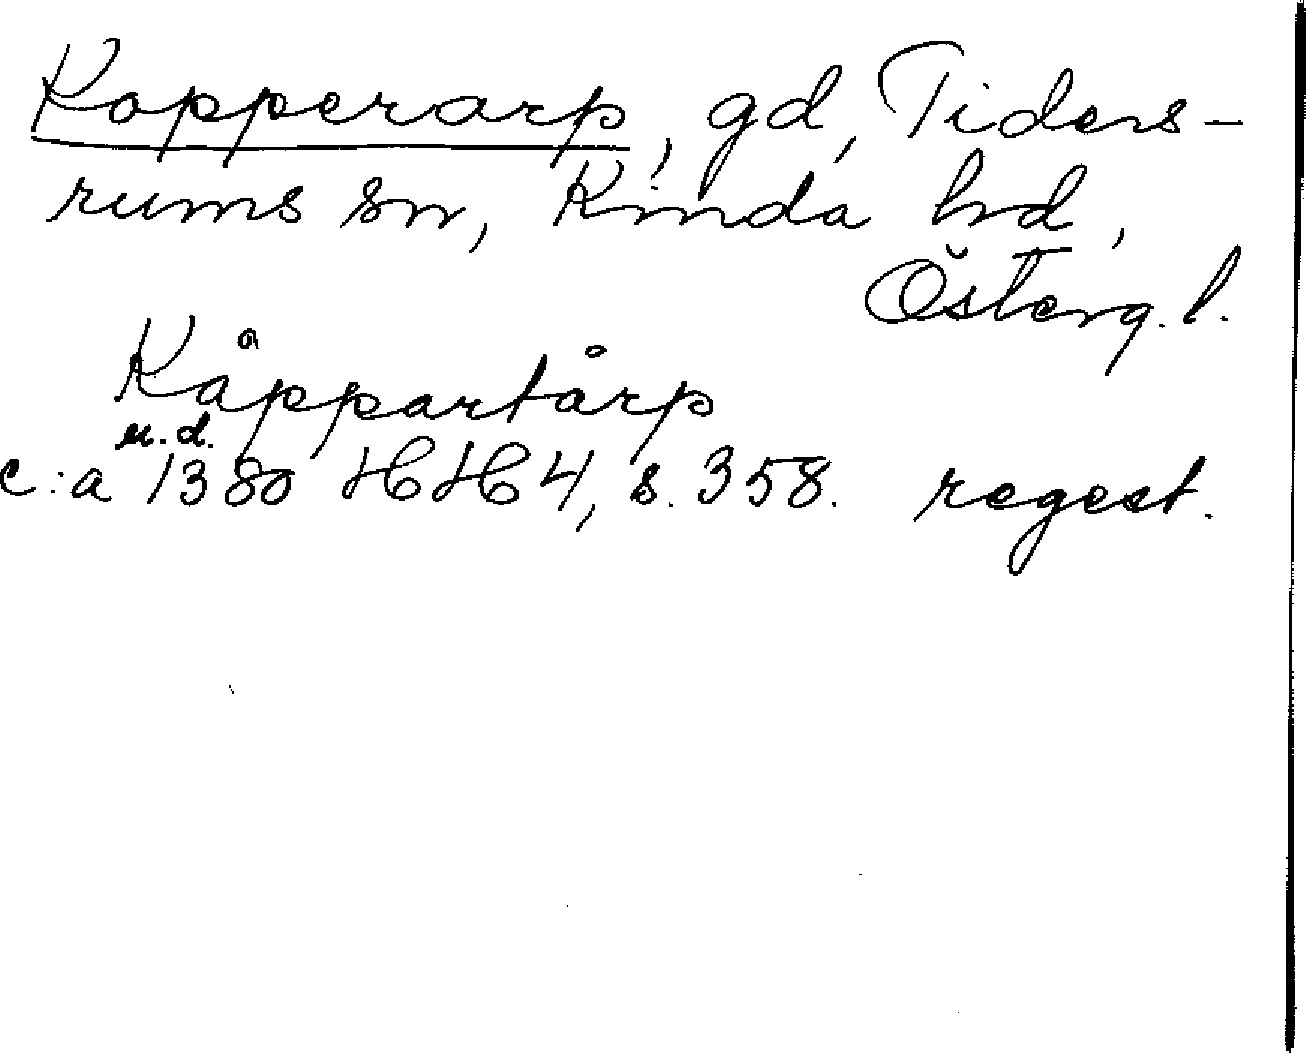 Kopperarp, gd, Tiders-
rums sn, Kinda hd,
Österg. l.
Kåppartårp
u.d.
c:a 1380 HH 4, s. 358. regest.